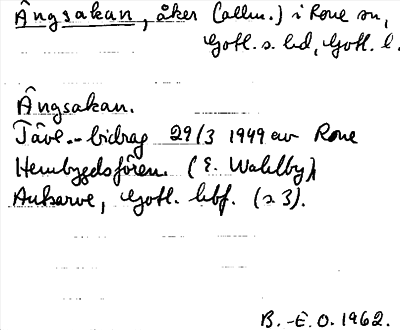 Ângsakan, åker (allm.) i Rone sn,
Gotl. s. hd, Gotl. l.
Ângsakan.
Tävl.-bidrag 29/3 1949 av Rone
Hembygdsfören. (E. Wahlby),
Autsarve, Gotl. hbf. (s 3).
B.-E.O. 1962.